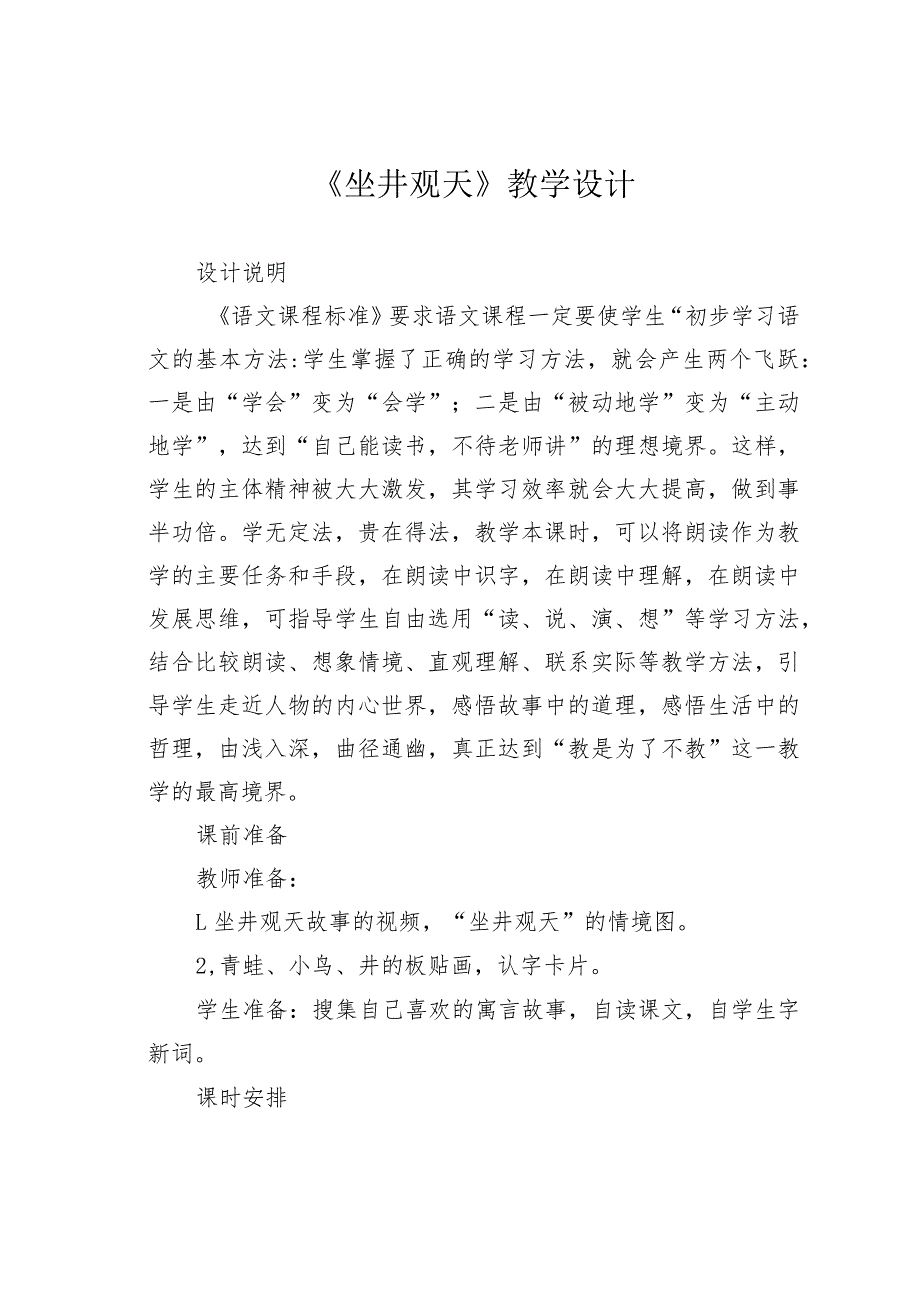 《坐井观天》教学设计
设计说明
《语文课程标准》要求语文课程一定要使学生“初步学习语
文的基本方法:学生掌握了正确的学习方法，就会产生两个飞跃：
一是由“学会”变为“会学”；二是由“被动地学”变为“主动
地学”，达到“自己能读书，不待老师讲”的理想境界。这样，
学生的主体精神被大大激发，其学习效率就会大大提高，做到事
半功倍。学无定法，贵在得法，教学本课时，可以将朗读作为教
学的主要任务和手段，在朗读中识字，在朗读中理解，在朗读中
发展思维，可指导学生自由选用“读、说、演、想”等学习方法，
结合比较朗读、想象情境、直观理解、联系实际等教学方法，引
导学生走近人物的内心世界，感悟故事中的道理，感悟生活中的
哲理，由浅入深，曲径通幽，真正达到“教是为了不教”这一教
学的最高境界。
课前准备
教师准备：
L坐井观天故事的视频，“坐井观天”的情境图。
2,青蛙、小鸟、井的板贴画，认字卡片。
学生准备：搜集自己喜欢的寓言故事，自读课文，自学生字
新词。
课时安排